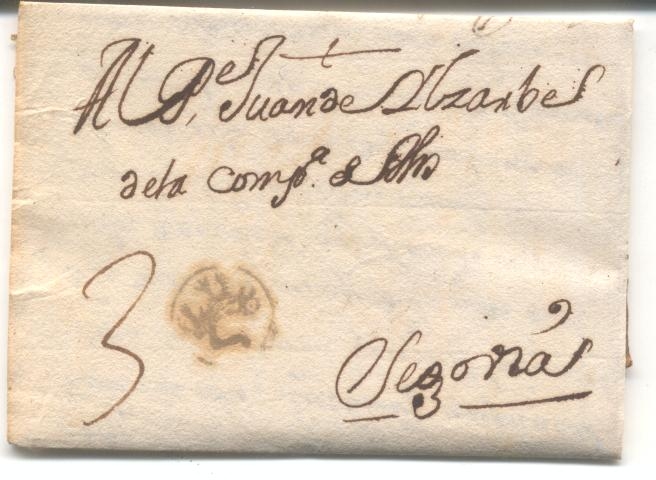 Al Pe, Juan de Ulzarbe
dela Compª. de Jhs
3
Segovia